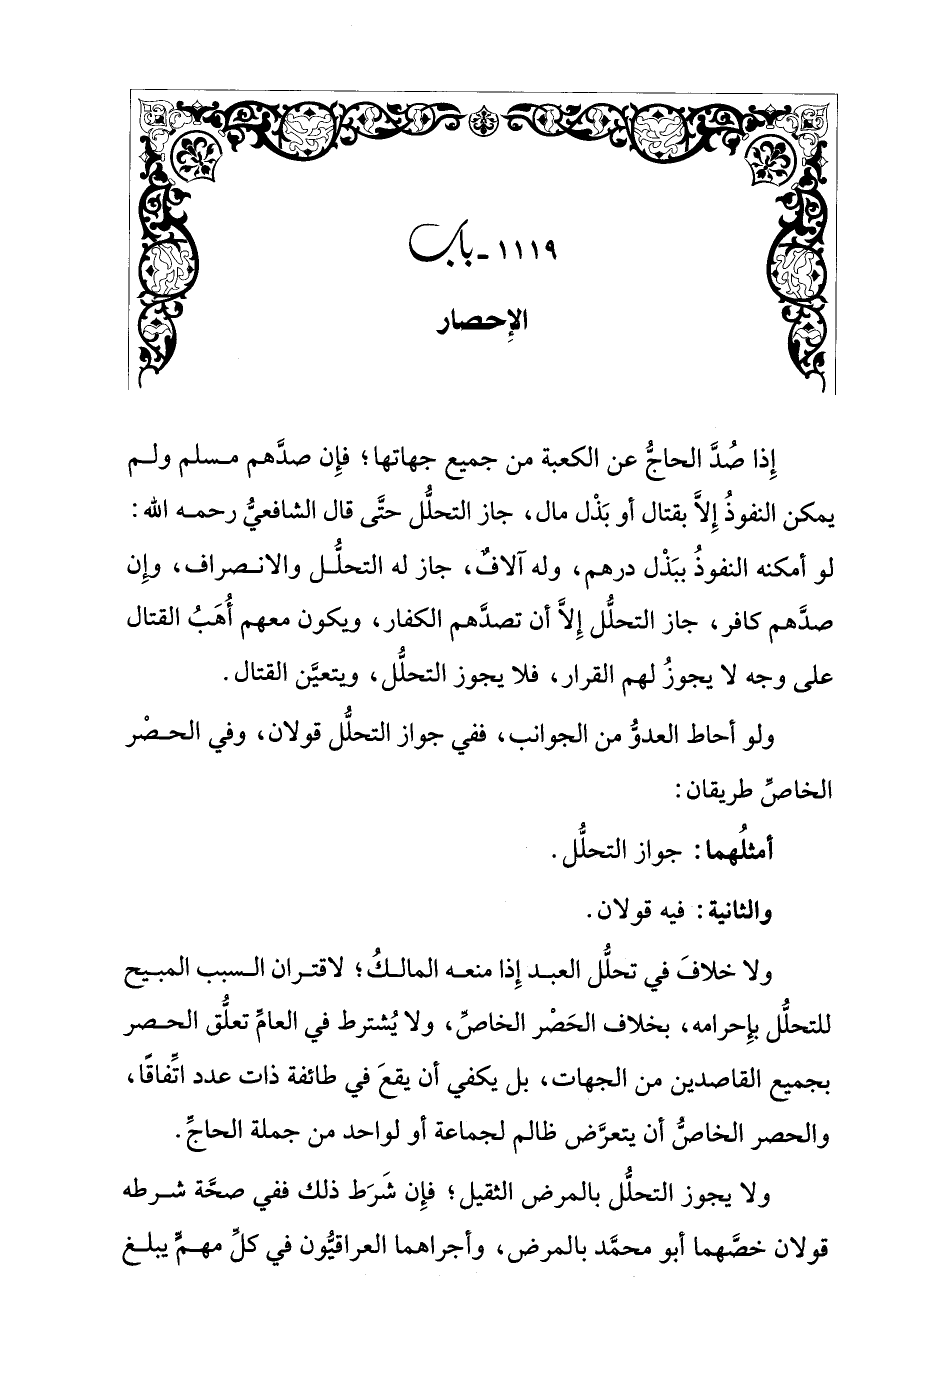 ١١١٩ - باب
الإِحصار
إِذا صُدَّ الحاجُّ عن الكعبة من جميع جهاتها؛ فإِن صدَّهم مسلم ولم
يمكن النفوذُ إِلاَّ بقتال أو بَذْل مال، جاز التحلُّل حتَّى قال الشافعيُّ رحمه الله:
لو أمكنه النفوذُ ببَذْل درهم، وله آلافٌ، جاز له التحلُّل والانصراف، وإِن
صدَّهم كافر، جاز التحلُّل إِلاَّ أن تصدَّهم الكفار، ويكون معهم أُهَبُ القتال
على وجه لا يجوزُ لهم القرار، فلا يجوز التحلُّل، ويتعيَّن القتال.
ولو أحاط العدوُّ من الجوانب، ففي جواز التحلُّل قولان، وفي الحصْر
الخاصِّ طريقان:
أمثلُهما: جواز التحلُّل.
والثانية: فيه قولان.
ولا خلافَ في تحلُّل العبد إِذا منعه المالكُ؛ لاقتران السبب المبيح
للتحلُّل بإِحرامه، بخلاف الحَصْر الخاصِّ، ولا يُشترط في العامِّ تعلُّق الحصر
بجميع القاصدين من الجهات، بل يكفي أن يقعَ في طائفة ذات عدد اتِّفاقًا،
والحصر الخاصُّ أن يتعرَّض ظالم لجماعة أو لواحد من جملة الحاجِّ.
ولا يجوز التحلُّل بالمرض الثقيل؛ فإِن شَرَط ذلك ففي صحَّة شرطه
قولان خصَّهما أبو محمَّد بالمرض، وأجراهما العراقيُّون في كلِّ مهمٍّ يبلغ